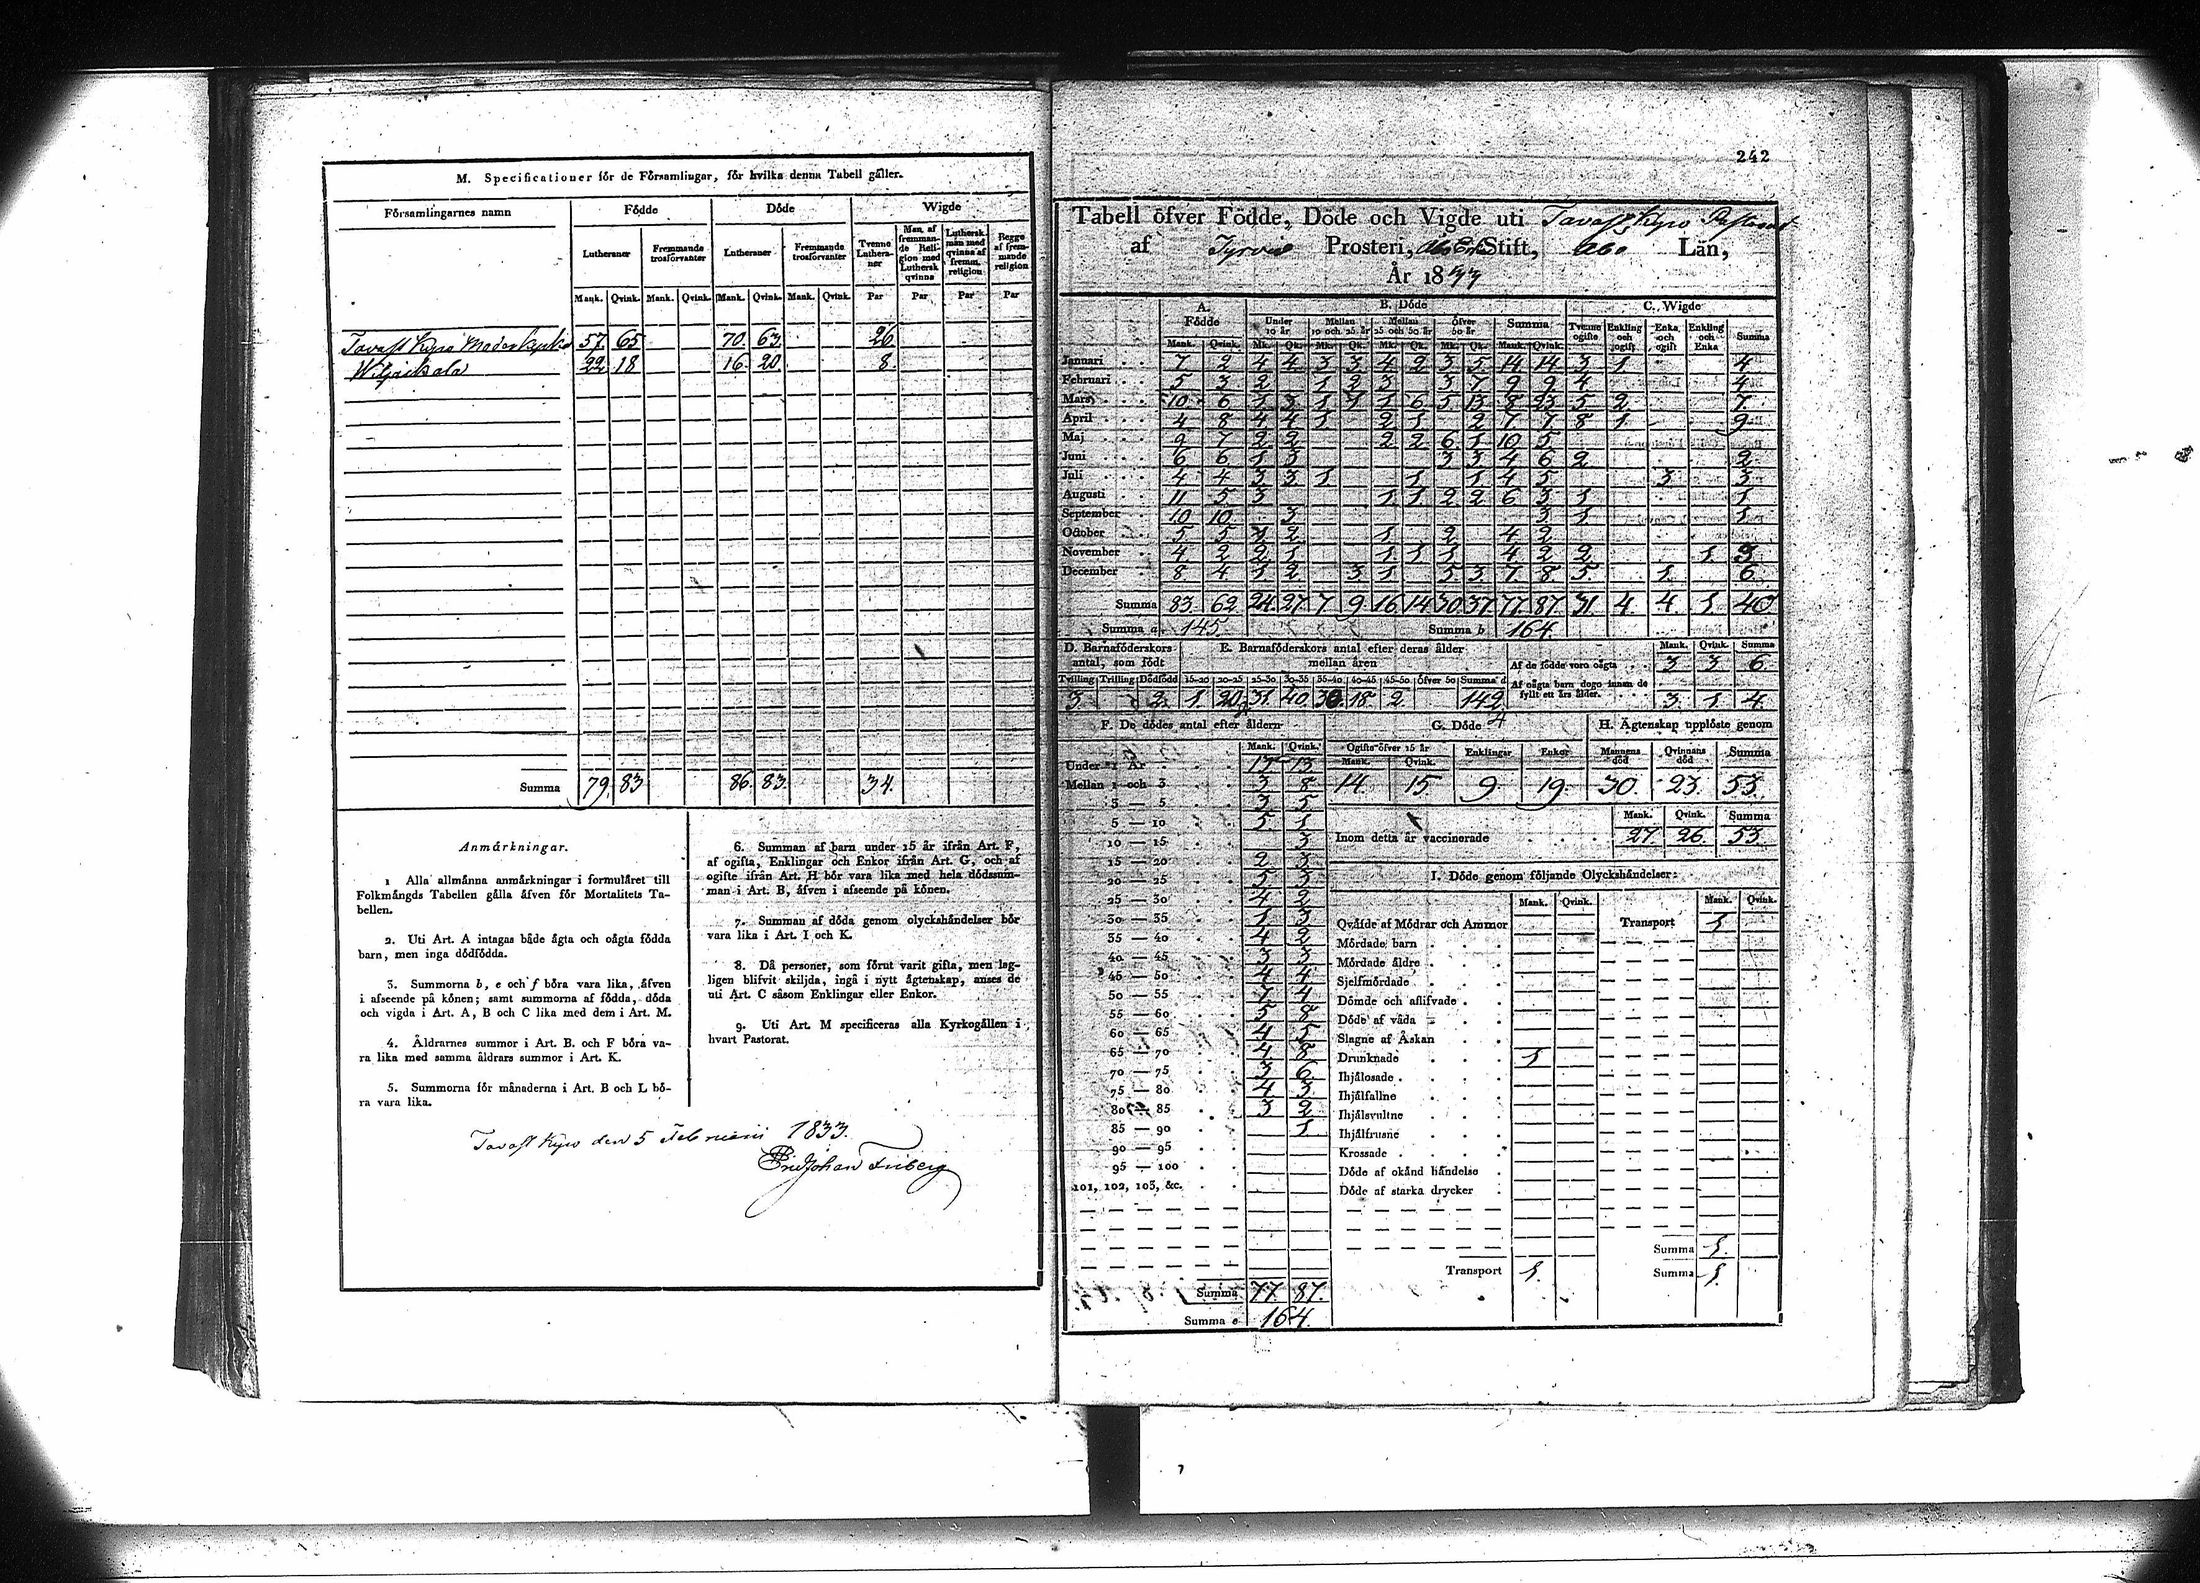 M. Specificationer för de Församlingar, för hvilka denna Tabell gäller.
Församlingarnes namn | Födde | Döde | Wigde
Lutheraner | Fremmande trosförvanter | Lutheraner | Fremmande trosförvanter | Tvenne Lutheraner | Man af fremmande Religion med Luthersk qvinna | Luthersk man med qvinna af fremm. religion | Begge af fremmande religion
Mank. | Qvink. | Mank. | Qvink. | Mank. | Qvink. | Mank. | Qvink. | Par | Par | Par | Par
Tavast Kyro Moderkyrka 57. 65 70. 63. 26
22 18 16. 20. 8.
Summa 79. 83 86. 83. 34.
Anmärkningar.
1 Alla allmänna anmärkningar i formuläret till
Folkmängds Tabellen gälla äfven för Mortalitets Ta-
bellen.
2. Uti Art. A intagas både ägta och oägta födda
barn, men inga dödfödda.
3. Summorna b, e och f böra vara lika, äfven
i afseende på könen; samt summorna af födda, döda
och vigda i Art. A, B och C lika med dem i Art. M.
4. Åldrarnes summor i Art. B. och F böra va-
ra lika med samma åldrars summor i Art. K.
5. Summorna för månaderna i Art. B och L bö-
ra vara lika.
6. Summan af barn under 15 år ifrån Art. F,
af ogifta, Enklingar och Enkor ifrån Art. G, och af
ogifte ifrån Art. H bör vara lika med hela dödssum-
man i Art. B, äfven i afseende på könen.
7. Summan af döda genom olyckshändelser bör
vara lika i Art. I och K.
8. Då personer, som förut varit gifta, men lag-
ligen blifvit skiljda, ingå i nytt ägtenskap, anses de
uti Art. C såsom Enklingar eller Enkor.
9. Uti Art. M specificeras alla Kyrkogällen i
hvart Pastorat.
Tavast Kyro den 5 Februarii 1833.
Johan Friberg
242
Tabell öfver Födde, Döde och Vigde uti Tavast Kyro Pastorat
af Tyrvis Prosteri, Stift, Åbo Län,
År 1833
A. Födde | B. Döde | C. Wigde
Under 10 år | Mellan 10 och 25 år | Mellan 25 och 50 år | Öfver 50 år | Summa | Tvenne ogifte | Enkling och ogift | Enka och ogift | Enkling och Enka | Summa
Mank. | Qvink. | Mk. | Qk. | Mk. | Qk. | Mk. | Qk. | Mk. | Qk. | Mank. | Qvink.
Januari 7 2 4 4 3 3 4 2 3 5 14 14 3 1 4
Februari 5 3 2 1 2 3 3 7 9 9 4 4
Mars 10 6 1 3 1 1 1 6 5 13 8 23 5 2 7
April 4 8 4 4 1 2 1 2 7 7 8 1 9
Maj 9 7 2 2 2 2 6 1 10 5
Juni 6 6 1 3 3 3 4 6 2 2
Juli 4 4 3 3 1 1 1 4 5 3 3
Augusti 11 5 3 1 1 2 2 6 3 1 1
September 10 10 3 3 1 1
October 5 5 1 2 1 2 4 2
November 4 2 2 1 1 1 1 4 2 2 1 3
December 8 4 1 2 3 1 5 3 7 8 5 1 6
Summa 83. 62. 24. 27 7 9 16 14 30 37. 77. 87 31. 4. 4 1 40
Summa a. 145. Summa b 164.
D. Barnaföderskors antal, som födt
E. Barnaföderskors antal efter deras ålder mellan åren
Tvilling | Trilling | Dödfödd | 15—20 | 20—25 | 25—30 | 30—35 | 35—40 | 40—45 | 45—50 | Öfver 50 | Summa d
3. 2. 1. 20 31. 40 30 18 2. 142
Mank. | Qvink. | Summa
Af de födde voro oägta 3 3 6.
Af oägta barn dogo innan de fyllt ett års ålder. 3. 1. 4.
F. De dödes antal efter åldern
Mank. Qvink.
Under 1 År 13 13
Mellan 1 och 3 3 8
3 — 5 3 5
5 — 10 5 1
10 — 15 3
15 — 20 2 3
20 — 25 5 3
25 — 30 4 2
30 — 35 1 3
35 — 40 4 2
40 — 45 3 3
45 — 50 4 4
50 — 55 7 4
55 — 60 5 8
60 — 65 4 5
65 — 70 4 8
70 — 75 3 6
75 — 80 4 3
80 — 85 3 2
85 — 90 1
90 — 95
95 — 100
101, 102, 103, &c.
Summa 77. 87.
Summa e 164.
G. Döde
Ogifte öfver 15 år | Enklingar | Enkor
Mank. | Qvink.
14 15 9. 19.
H. Ägtenskap upplöste genom
Mannens död | Qvinnans död | Summa
30. 23. 53.
Mank. | Qvink. | Summa
Inom detta år vaccinerade 27. 26. 53.
I. Döde genom följande Olyckshändelser:
Mank. | Qvink. | Mank. | Qvink.
Qväfde af Mödrar och Ammor Transport 1
Mördade barn
Mördade äldre
Sjelfmördade
Dömde och aflifvade
Döde af våda
Slagne af Åskan
Drunknade 1
Ihjälosade
Ihjälfallne
Ihjälsvultne
Ihjälfrusne
Krossade
Döde af okänd händelse
Döde af starka drycker
Summa 1.
Transport 1. Summa 1.